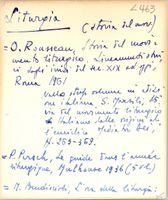 L 463
Liturgia
(storia del mov.)
= O. Rousseau, Storia del movi-
mento liturgico. Lineamenti stori-
ci dagli inizi del sec. XIX ad oggi,
Roma 1961.
nello stesso volume in edizione
italiana S. Marsili, Storia
del movimento liturgico
italiano dalle origini
all'enciclica Mediator Dei,
p. 263-369.
= P. Pirsch, Le guide dans l'année
liturgique, Mulhouse 1936 (5 vol.)
=